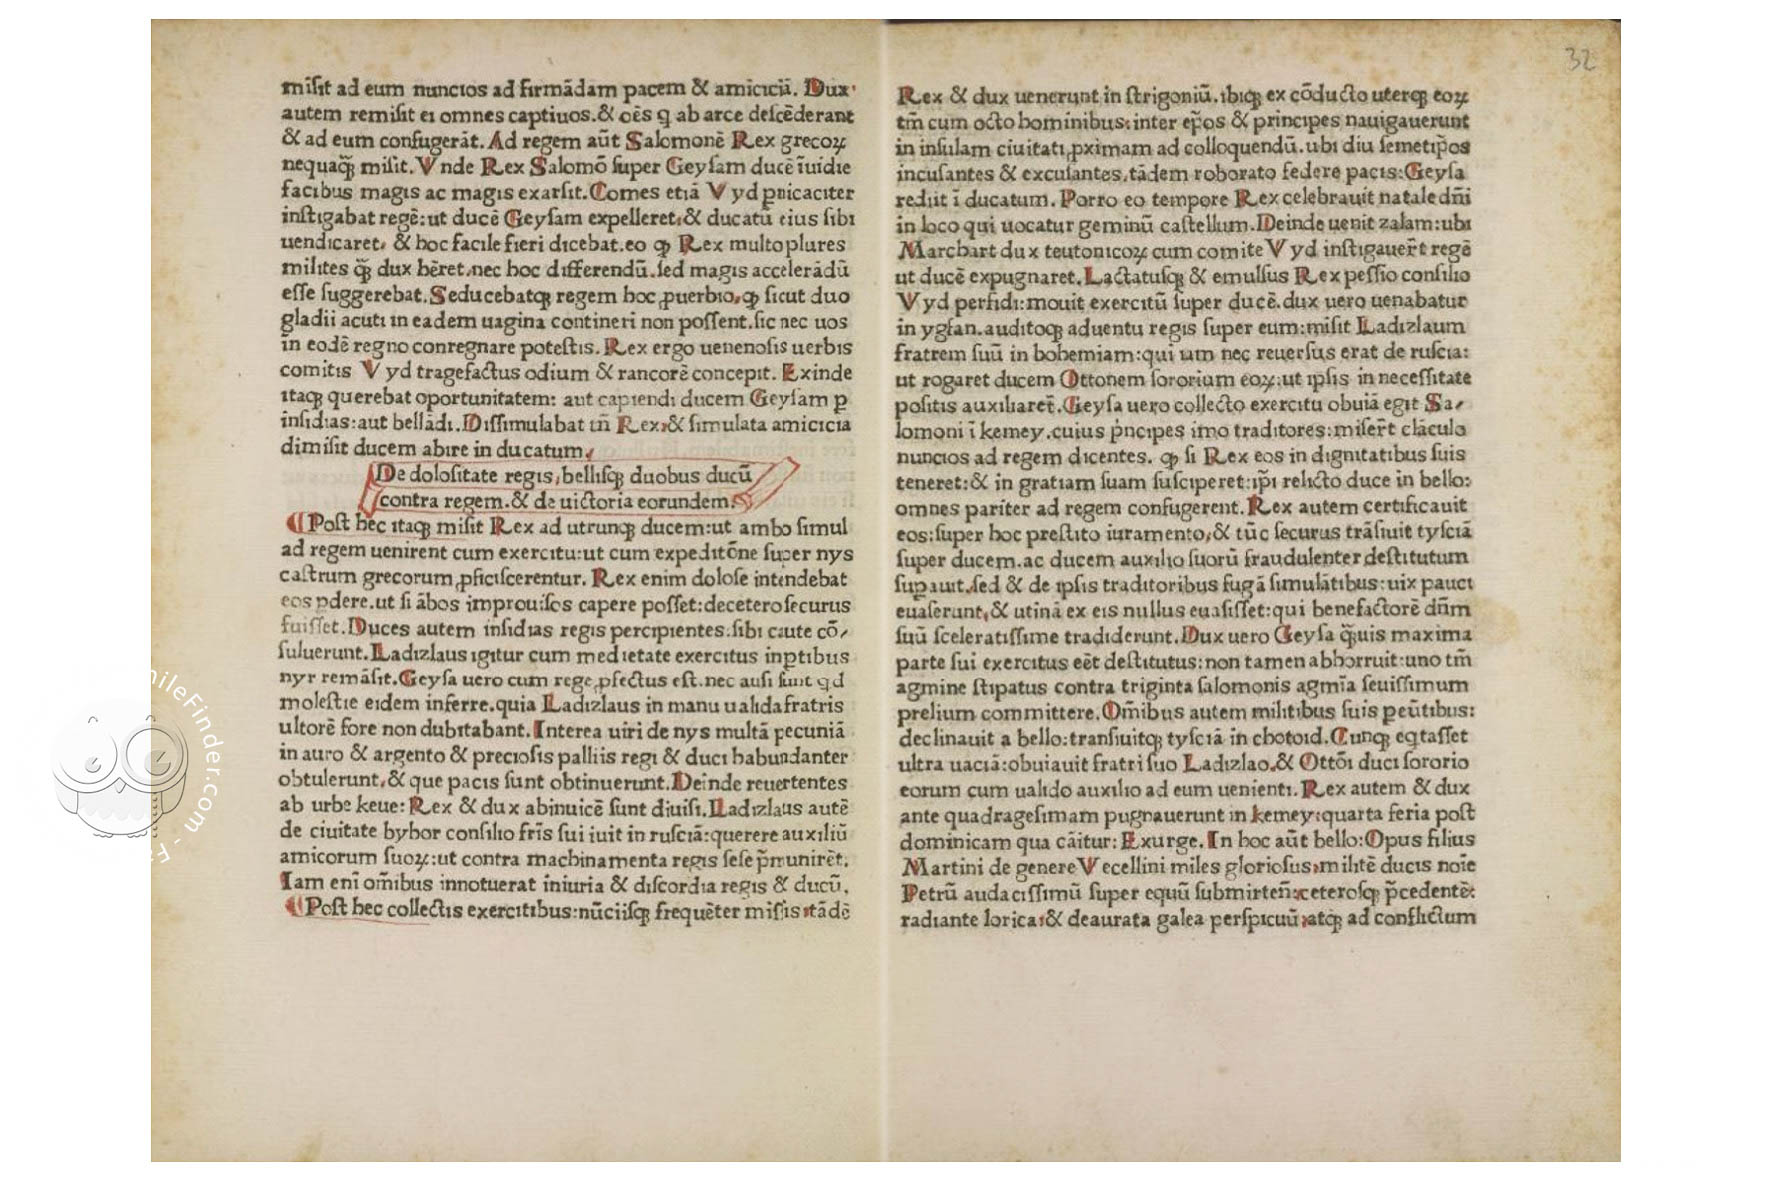 misit ad eum nuncios ad firmādam pacem & amiciciā. Dux
autem remisit ei omnes captiuos.& oēs q ab arce descēderant
& ad eum confugerāt. Ad regem aūt Salomonē Rex grecoꝝ
nequaꝙ̄ misit. Vnde Rex Salomō super Geysam ducē īuidie
facibus magis ac magis exarsit. Comes etiā Vyd ꝑnicaciter
instigabat regē: ut ducē Geysam expelleret:& ducatū eius sibi
uendicaret. & hoc facile fieri dicebat.eo ꝙ Rex multo plures
milites ꝙ̄ dux hēret.nec hoc differendū.sed magis accelerādū
esse suggerebat. Seducebatqꝫ regem hoc ꝓuerbio. ꝙ sicut duo
gladii acuti in eadem uagina contineri non possent.sic nec uos
in eodē regno conregnare potestis. Rex ergo uenenosis uerbis
comitis Vyd tragefactus odium & rancorē concepit. Exinde
itaqꝫ querebat oportunitatem: aut capiendi ducem Geysam ꝑ
insidias:aut bellādi. Dissimulabat tn̄ Rex:& simulata amicicia
dimisit ducem abire in ducatum.
De dolositate regis, bellisqꝫ duobus ducū
contra regem.& de uictoria eorundem.
Post hec itaqꝫ misit Rex ad utrunqꝫ ducem:ut ambo simul
ad regem uenirent cum exercitu:ut cum expeditōne super nys
castrum grecorum ꝓficiscerentur. Rex enim dolose intendebat
eos ꝑdere.ut si ābos improuisos capere posset:decetero securus
fuisset. Duces autem insidias regis percipientes:sibi caute cō/
suluerunt. Ladizlaus igitur cum medietate exercitus in ꝑtibus
nyr remāsit. Geysa uero cum rege ꝓfectus est.nec ausi sunt qd
molestie eidem inferre.quia Ladizlaus in manu ualida fratris
ultorē fore non dubitabant. Interea uiri de nys multā pecuniā
in auro & argento & preciosis palliis regi & duci habundanter
obtulerunt.& que pacis sunt obtinuerunt. Deinde reuertentes
ab urbe keue: Rex & dux abinuicē sunt diuisi. Ladizlaus autē
de ciuitate byhor consilio fr̄is sui iuit in rusciā:querere auxiliū
amicorum suoꝝ:ut contra machinamenta regis sese p̄munirēt.
Iam enī om̄ibus innotuerat iniuria & discordia regis & ducū.
Post hec collectis exercitibus:nūciisqꝫ frequēter missis:tādē
32
Rex & dux uenerunt in strigoniū.ibiqꝫ ex cōducto uterqꝫ eoꝝ
tm̄ cum octo hominibus:inter ep̄os & principes nauigauerunt
in insulam ciuitati ꝓximam ad colloquendū.ubi diu semetip̄os
incusantes & excusantes.tādem roborato federe pacis:Geysa
rediit ī ducatum. Porro eo tempore Rex celebrauit natale dn̄i
in loco qui uocatur geminū castellum. Deinde uenit zalam:ubi
Marchart dux teutonicoꝝ cum comite Vyd instigauer̄t regē
ut ducē expugnaret. Lactatusqꝫ & emulsus Rex pessio consilio
Vyd perfidi:mouit exercitū super ducē.dux uero uenabatur
in ygfan.auditoqꝫ aduentu regis super eum:misit Ladizlaum
fratrem suū in bohemiam:qui iam nec reuersus erat de ruscia:
ut rogaret ducem Ottonem sororium eoꝝ:ut ipsis in necessitate
positis auxiliaret̄. Geysa uero collecto exercitu obuiā egit Sa/
lomoni ī kemey.cuius p̄ncipes imo traditores:miser̄t clāculo
nuncios ad regem dicentes. ꝙ si Rex eos in dignitatibus suis
teneret:& in gratiam suam susciperet:ip̄i relicto duce in bello:
omnes pariter ad regem confugerent. Rex autem certificauit
eos:super hoc prestito iuramento.& tūc securus trāsiuit tysciā
super ducem.ac ducem auxilio suorū fraudulenter destitutum
suꝑauit.sed & de ipsis traditoribus fugā simulātibus:uix pauci
euaserunt.& utinā ex eis nullus euasisset:qui benefactorē dn̄m
suū sceleratissime tradiderunt. Dux uero Geysa ꝙ̄uis maxima
parte sui exercitus eēt destitutus:non tamen abhorruit:uno tm̄
agmine stipatus contra triginta salomonis agmīa seuissimum
prelium committere. Om̄ibus autem militibus suis peūtibus:
declinauit a bello:transiuitqꝫ tysciā in chotoid. Cunqꝫ eqtasset
ultra uaciā:obuiauit fratri suo Ladizlao.& Ottōi duci sororio
eorum cum ualido auxilio ad eum uenienti. Rex autem & dux
ante quadragesimam pugnauerunt in kemey:quarta feria post
dominicam qua cāitur: Exurge. In hoc aūt bello:Opus filius
Martini de genere Vecellini miles gloriosus:militē ducis noīe
Petrū audacissimū super equū submirten̄:ceterosqꝫ p̄cedentē:
radiante lorica:& deaurata galea perspicuū:atqꝫ ad conflictum